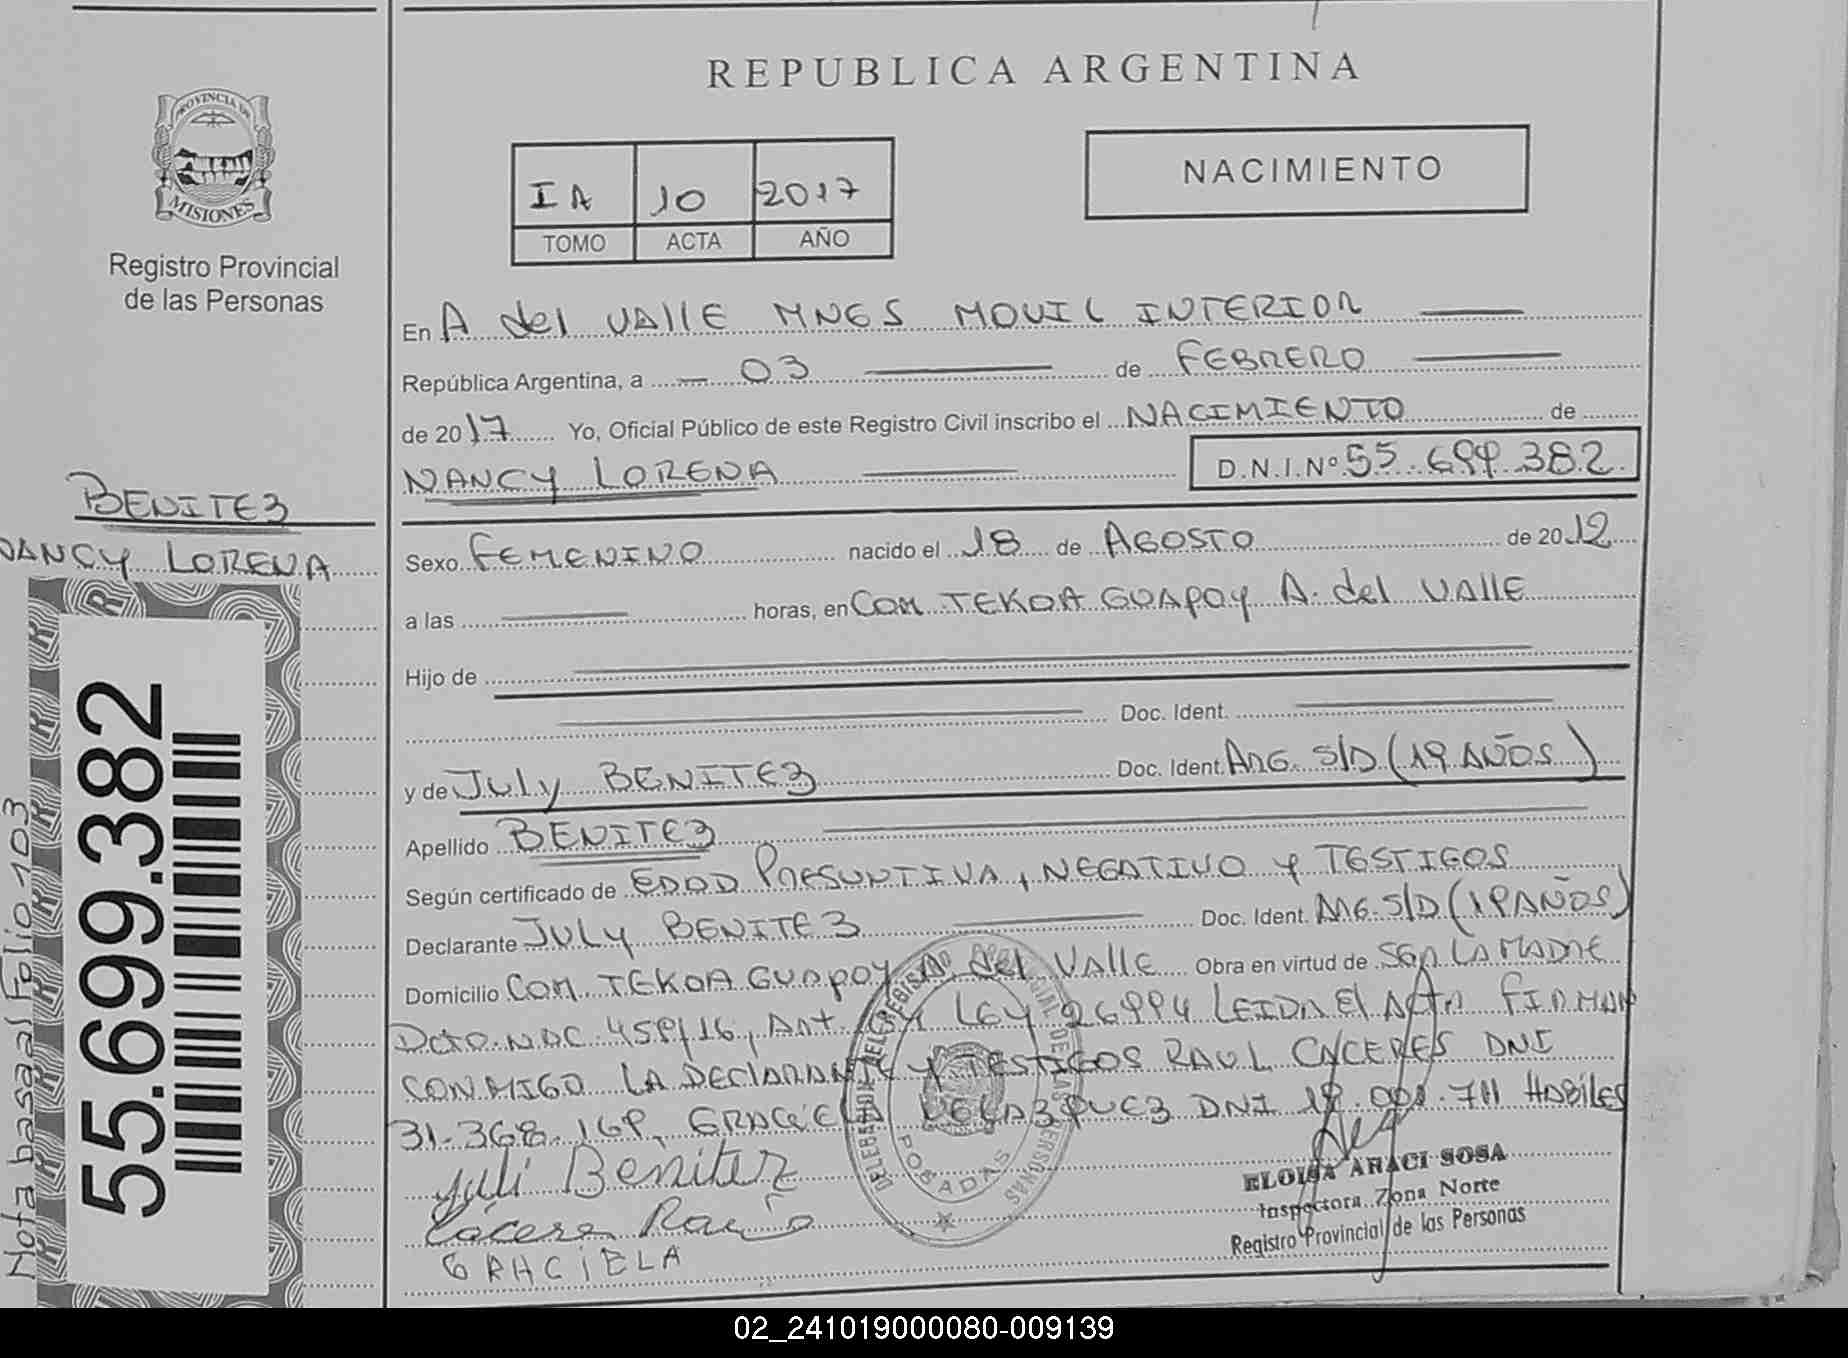 REPUBLICA ARGENTINA
PROVINCIA DE
MISIONES
Registro Provincial
de las Personas
IA 10 2017
TOMO ACTA AÑO
NACIMIENTO
En A del VALLE MNES MOVIL INTERIOR
República Argentina, a 03 de FEBRERO
de 2017 Yo, Oficial Público de este Registro Civil inscribo el NACIMIENTO de
NANCY LORENA D.N.I.Nº 55.699.382
BENITEZ
NANCY LORENA
Sexo FEMENINO nacido el 18 de AGOSTO de 2012
a las horas, en COM TEKOA GUAPOY A. del VALLE
Hijo de
Doc. Ident.
y de July BENITEZ Doc. Ident. ARG. S/D (19 AÑOS)
Apellido BENITEZ
Según certificado de EDAD PRESUNTIVA, NEGATIVO y TESTIGOS
Declarante JULY BENITEZ Doc. Ident. ARG. S/D (19 AÑOS)
Domicilio COM TEKOA GUAPOY A. del VALLE Obra en virtud de SER LA MADRE
DCTO. NAC. 459/16, Art. LEY 26994 LEIDA El ACTA FIRMAN
CONMIGO LA DEClARANTE y TESTIGOS RAUL CACERES DNI
31.368.169, GRACIELA VELAZQUEZ DNI 19.001.711 HABILES
yuli Benitez
GRACIELA
POSADAS
ELOISA ARACI SOSA
Inspectora Zona Norte
Registro Provincial de las Personas
55.699.382
Nota basaal Folio 103
02_241019000080-009139